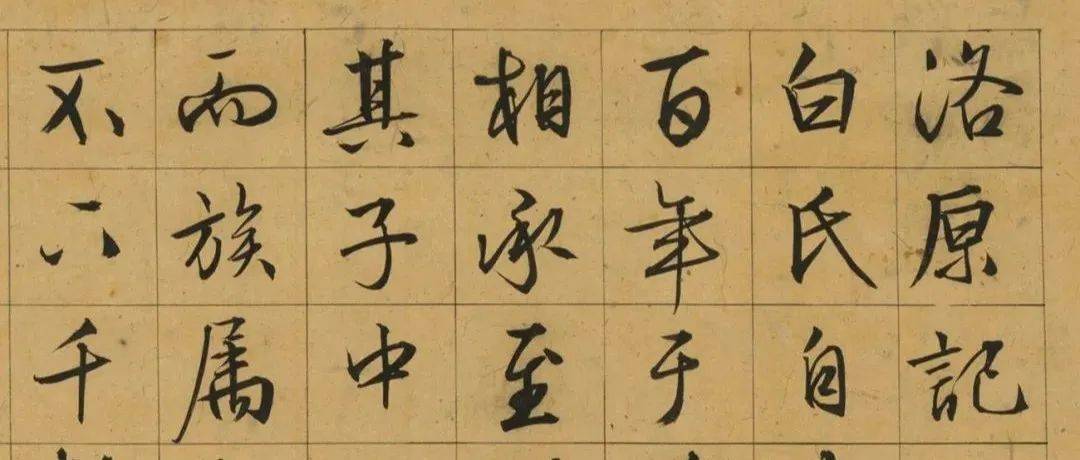 洛原記
白氏自
百年于
相承至
其子中
而族属
不下千